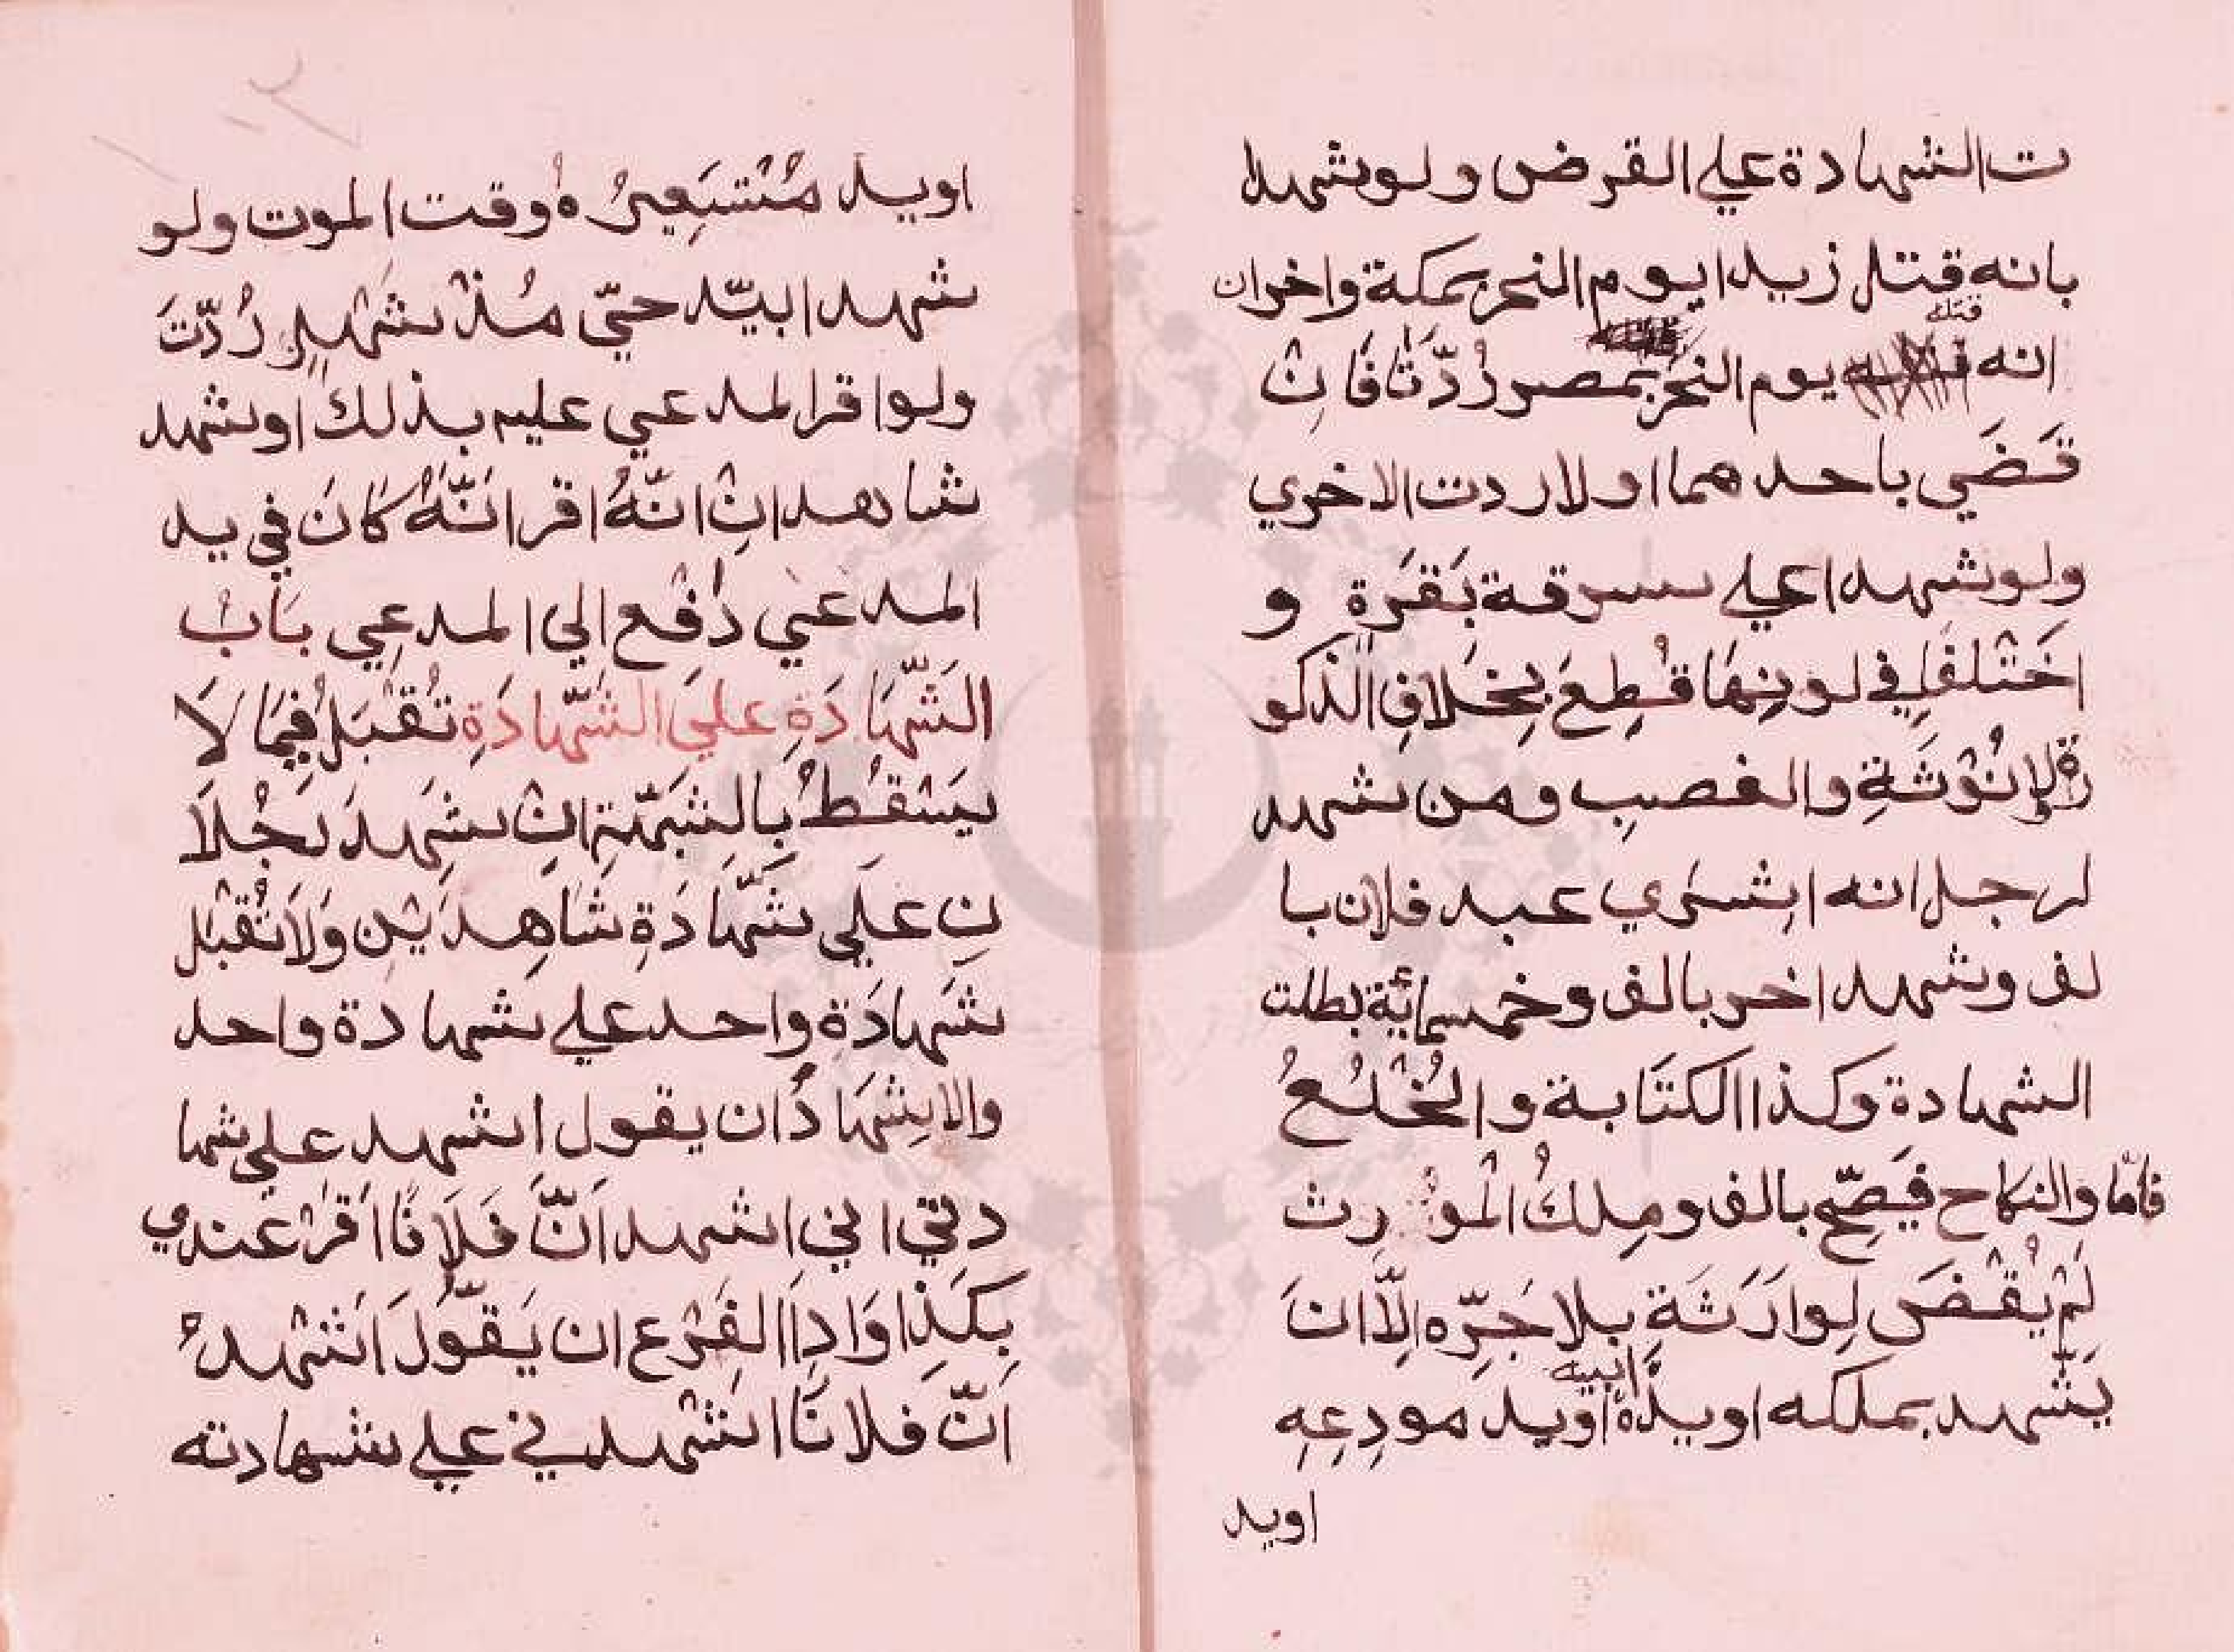 ت الشهادة علي القرض ولو شهدا
بانه قتل زيدا يوم النحر بمكة واخران
انه قتله يوم النحر بمصر رُدّتا فَانْ
قَضَي باحدهما اولا ردت الاخري
ولو شهدا علي سرقة بَقَرَةٍ و
اخَتْلفَا في لونِهَا قُطِعَ بِخلافِ الذكو
رةِ والانُوْثَةِ والغصبِ ومن شهد
لرجل انه اشتري عبد فلان با
لف وشهد اخر بالف وخمسمائة بطلت
الشهادة وكذا الكتَابة والخُلْعُ
فامّا والنكاح فَيَصّح بالف ومِلكُ الْمُوَرِث
لَمْ يُقْضَ لِوارَثَةِ بلا جَرِّه اِلّا انَ
يَشْهد بملكه اويده اويد مودِعِهِ
ابيه
اويد
اويد مُسْتَعِيرُه وُقت الموت ولو
شهدا بيّد حيّ مُذْ شَهْرٍ رُدّتَ
ولو اقر المدعي عليه بذلك اوشهد
شاهدانِ انَّهُ اقر انَّهُ كَانَ في يد
المدعَي دُفْعِ الي المدعِي بَابُ
الشَّهَادَةِ علي الشَّهادَةِ تُقْبَلُ فِيمَا لَا
يَسْقُطُ بِالشبهة انْ شهِدَ رَجُلَا
نِ عَلَي شَهَادَةِ شَاهِدَيْنِ وَلَا تُقْبَلُ
شَهادَة واحد علي شهادة واحد
والاِشْهَادُ ان يقول اشهد علي شها
دتي اني اشهد اَنَّ فَلَانًا اَقَرْ عندي
بِكَذِا وَادِاَ الفَرْع ان يَقُولَ اَشْهدُ
اَنّ فلانًا اشْهدني علي شهادته